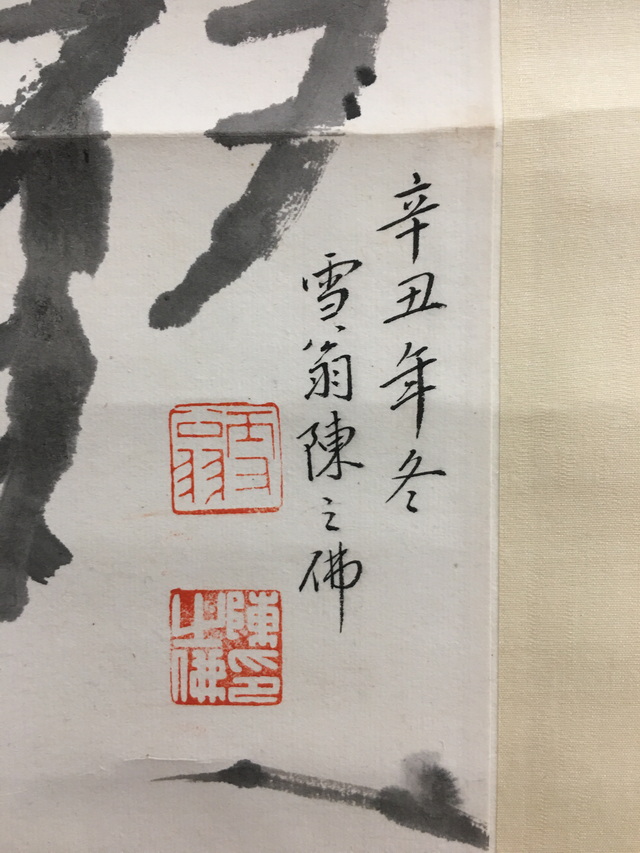 辛丑年冬
雪翁陳之佛
雪翁
陳印
之佛